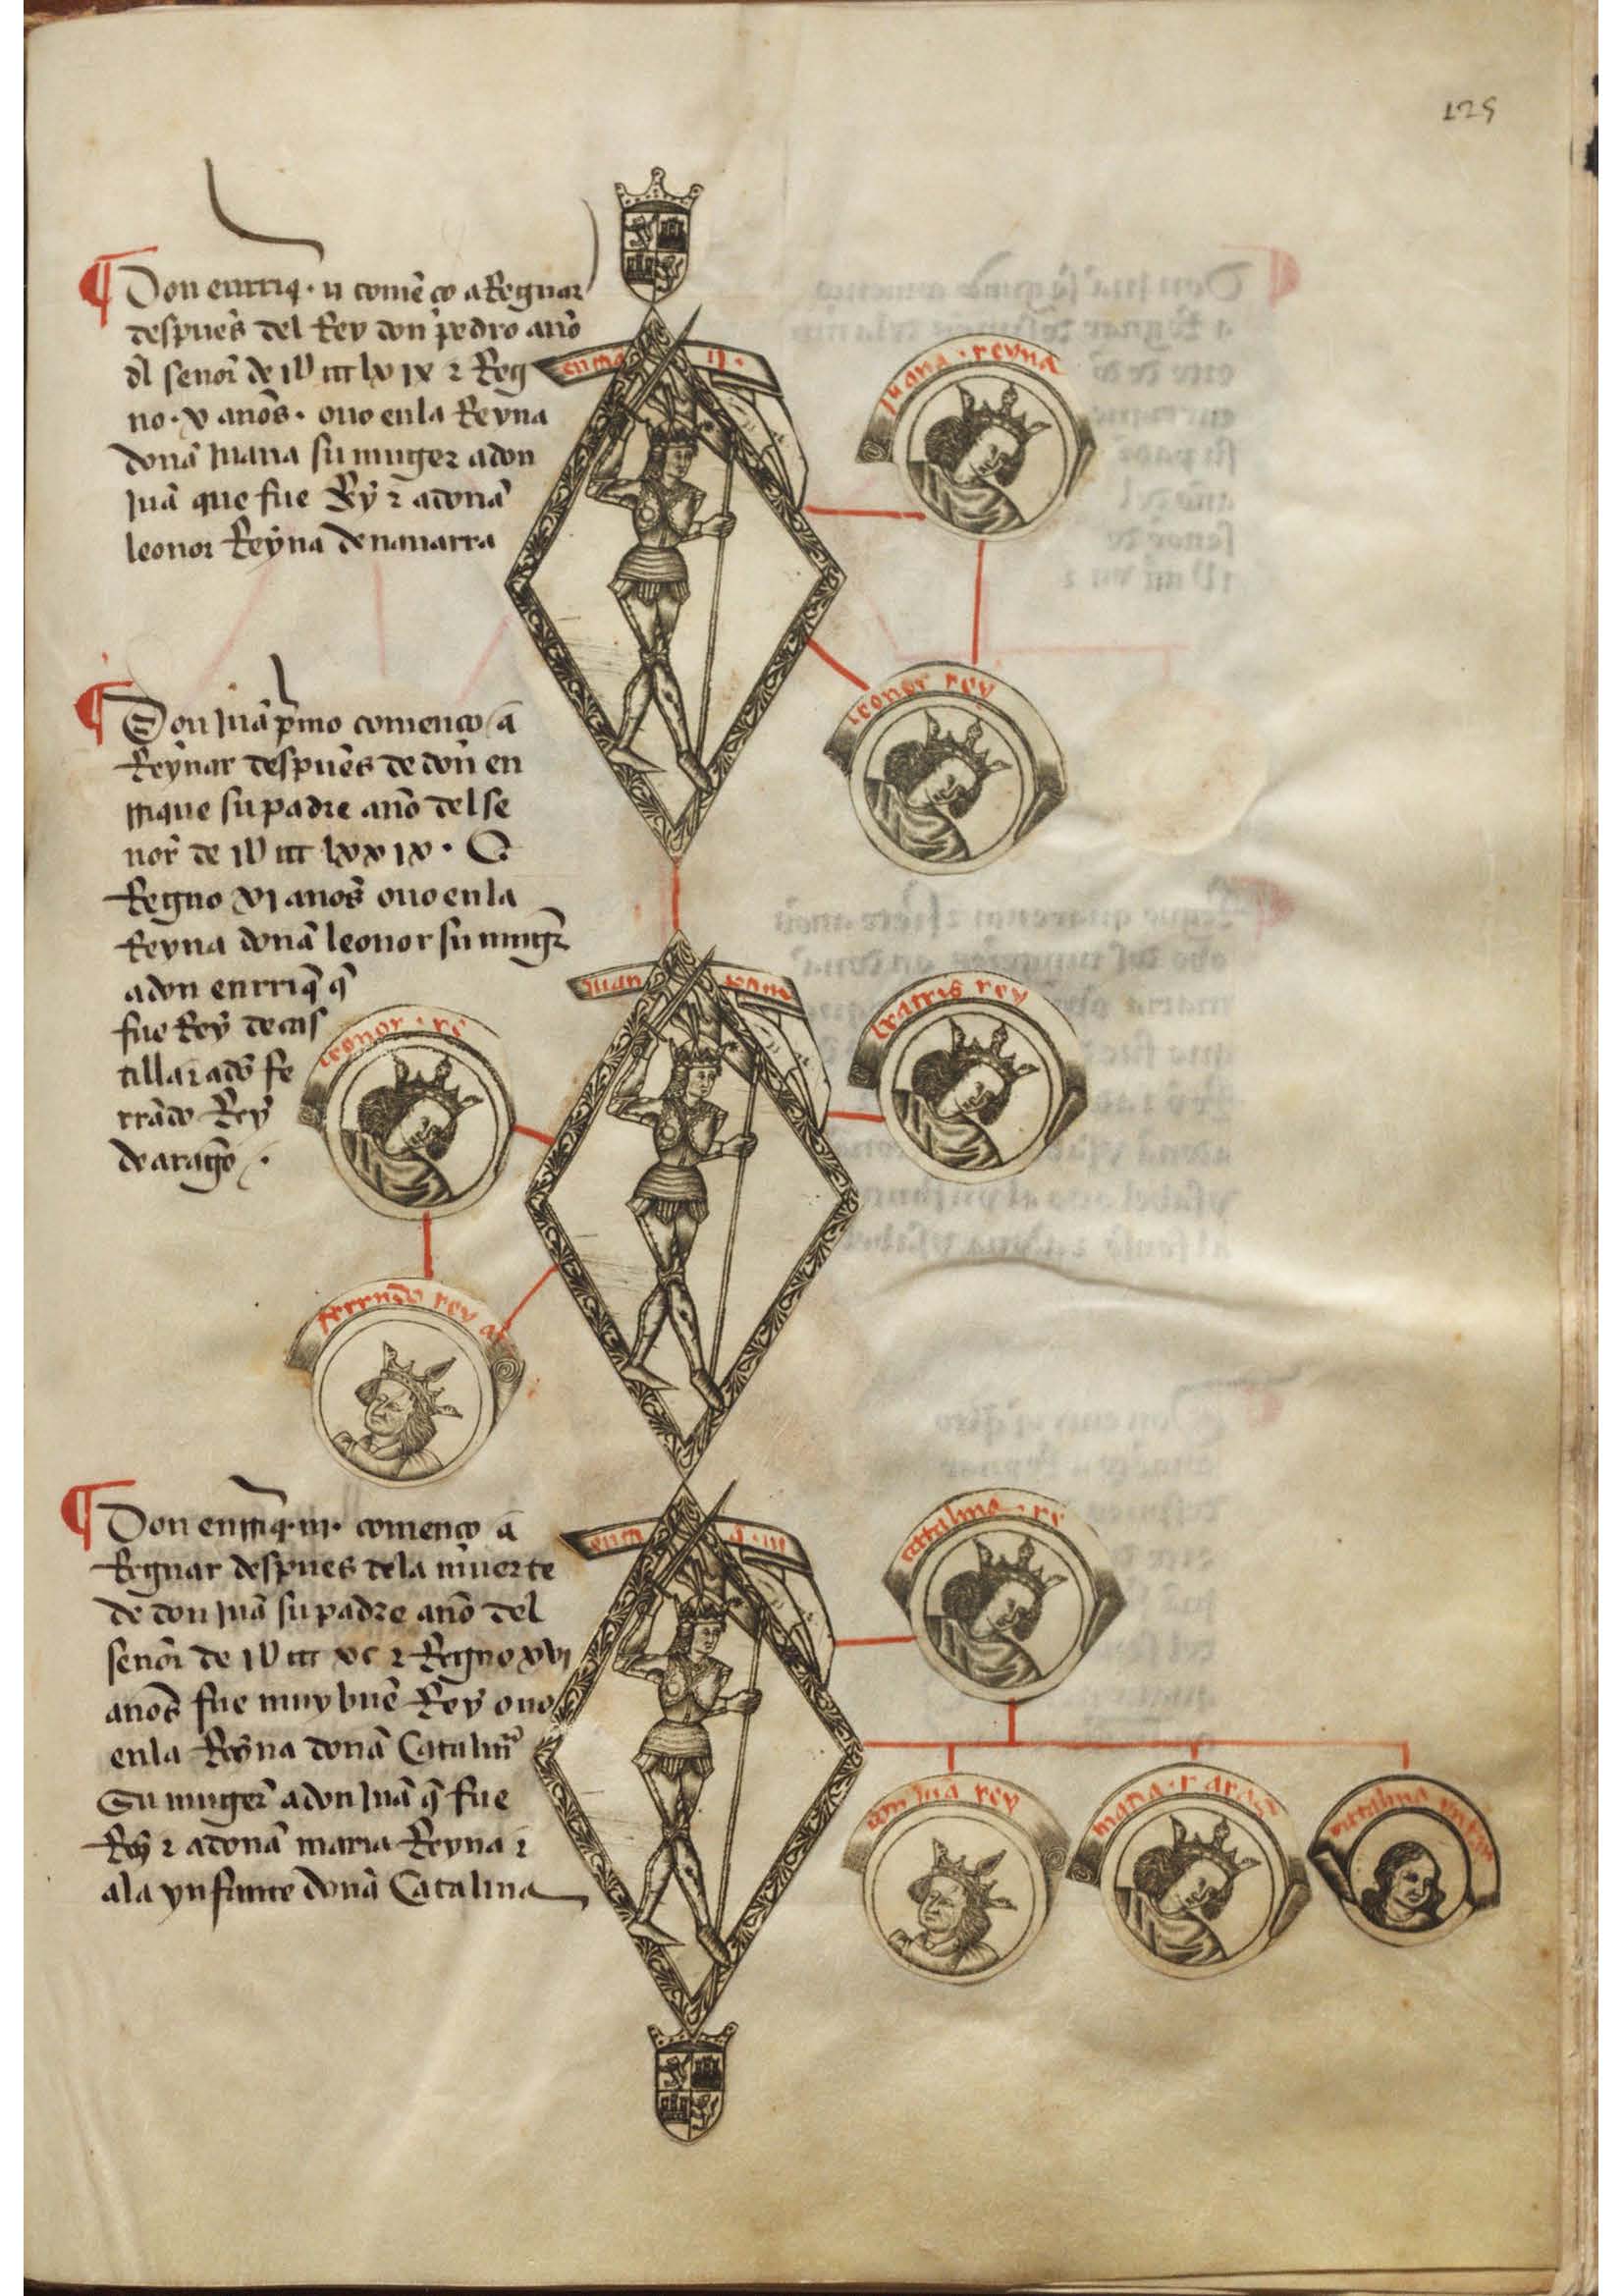 125
Don enrriq̃ · ii comẽço a Regnar
despues del Rey don pedro año
dl señor de iU iii lx ix ⁊ Reg
no · x años · ouo en la Reyna
doña juana su muger a don
juã que fue Rey ⁊ a doña
leonor Reyna de nauarra
enrriq̃ ii ·
juana · reyna
leonor rey
Don juã p̃mo començo a
Reynar despues de don en
rrique su padre año del se
ñor de iU iii lxx ix · Q
Regno xi años ouo en la
Reyna doña leonor su mugr̃
a don enrriq̃ q̃
fue Rey de cas
tilla ⁊ a dõ fe
rrãdo Rey
de aragõ ·
juan primo
leonor · re
beatris rey
ferrando rey a
Don enrriq̃ · iii · començo a
Regnar despues dela muerte
de don juã su padre año del
señor de iU iii xc ⁊ Regno xvi
años fue muy buẽ Rey ouo
en la Reyna doña Catalina
Su muger a don juã q̃ fue
Rey ⁊ a doña maria Reyna ⁊
ala ynfante doña Catalina
enrriq̃ · iii
catalina · re
don juã rey
maria · r arag
catalina